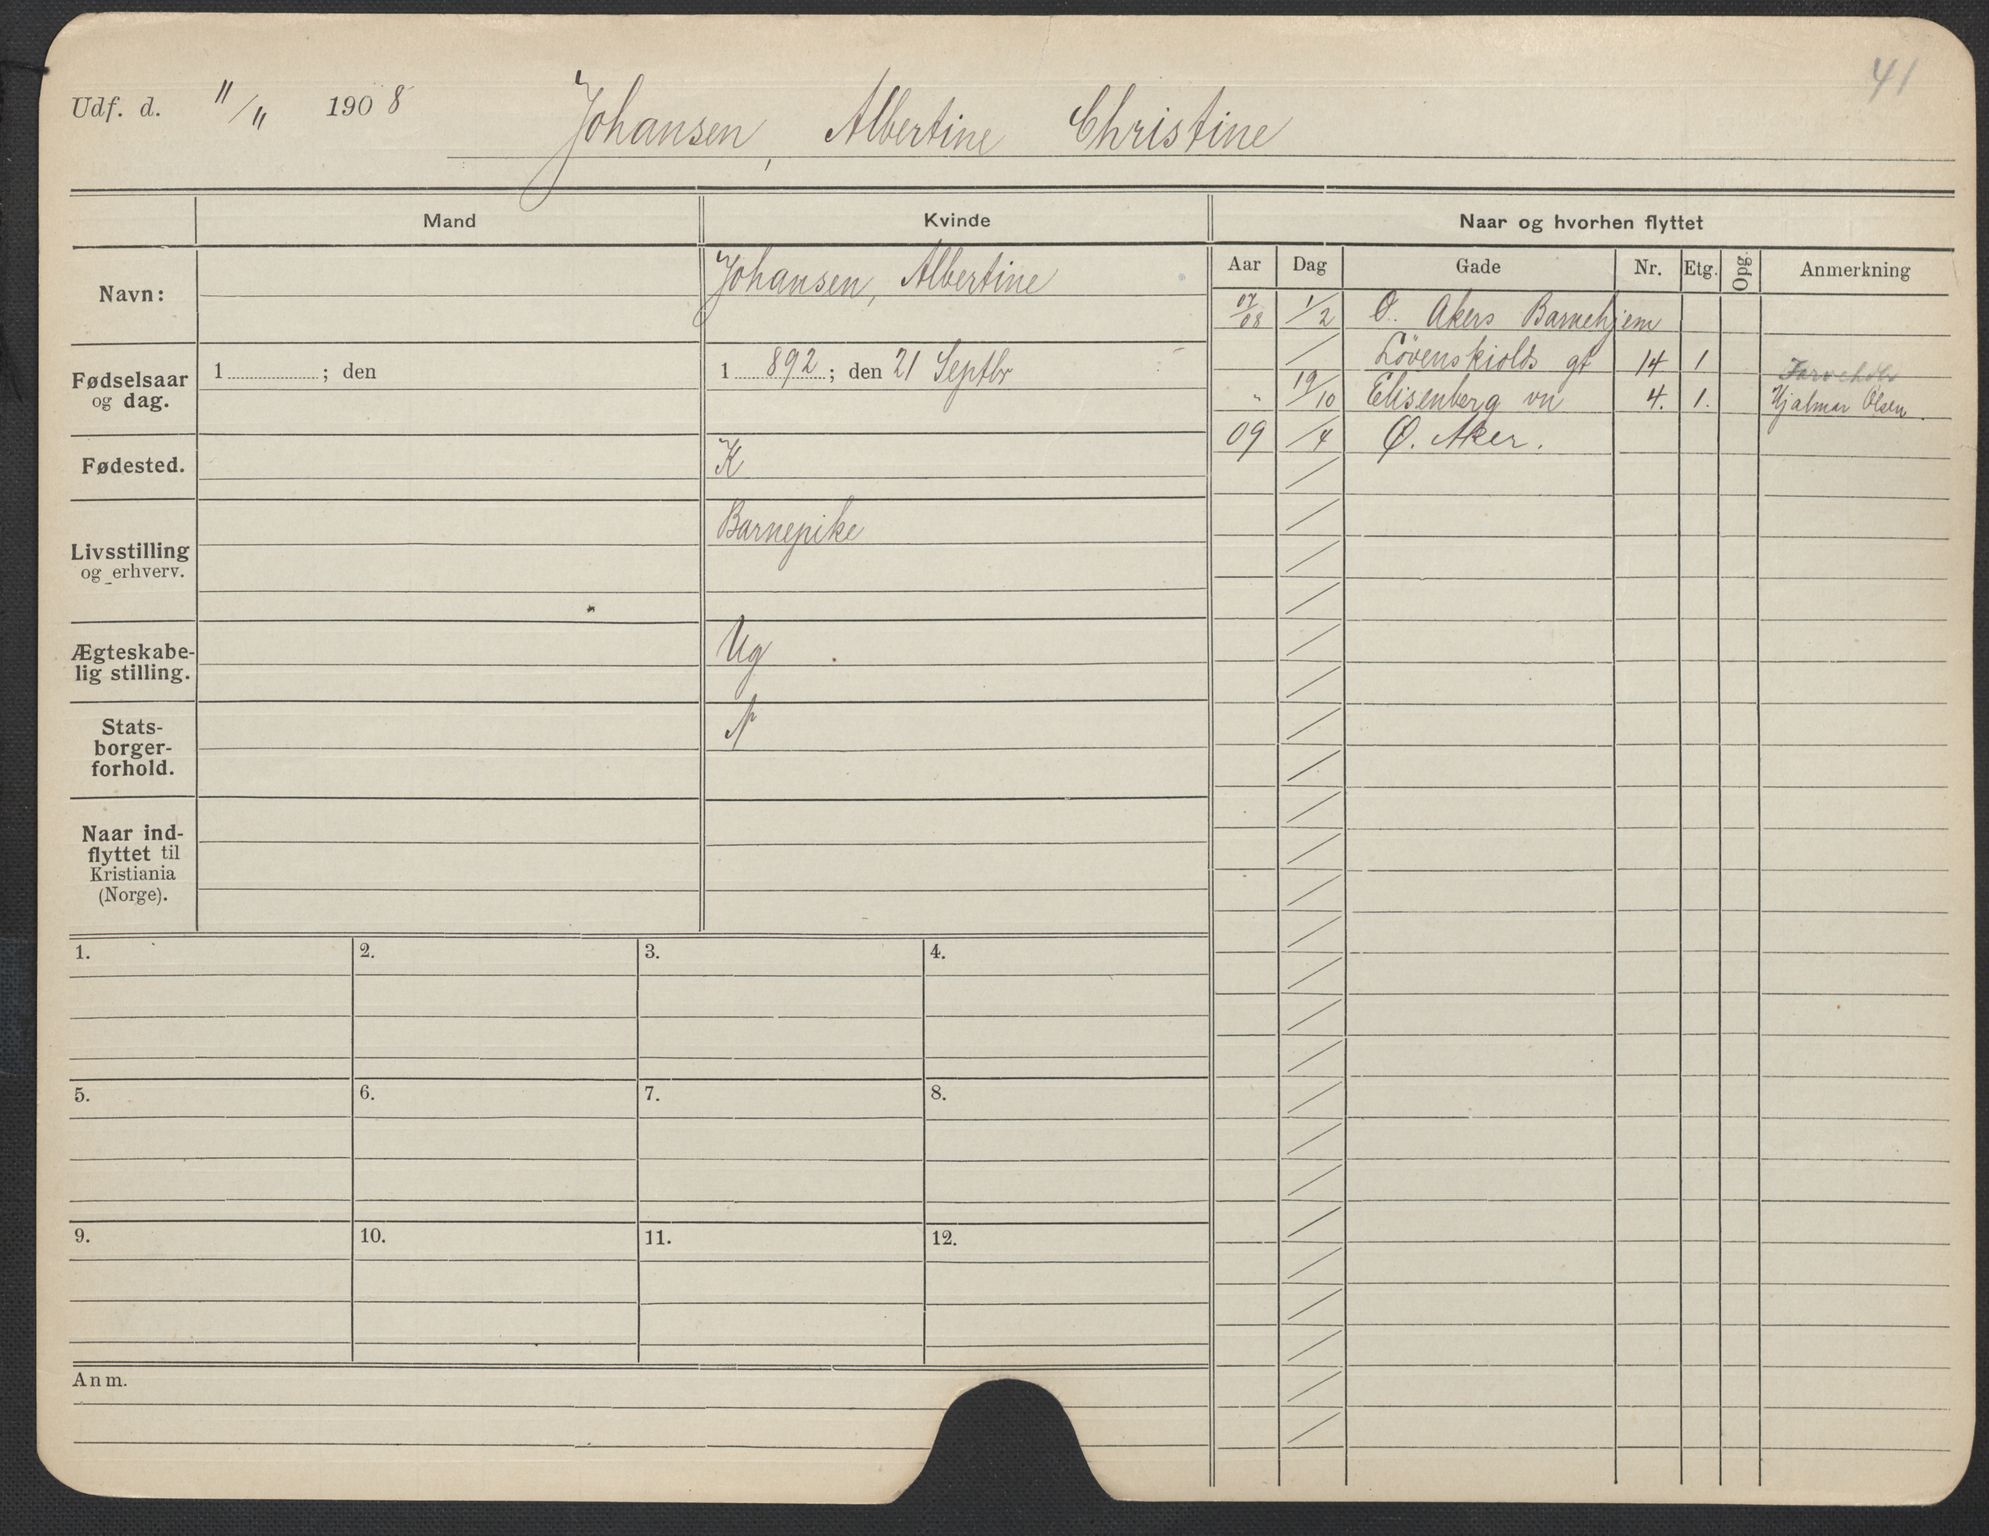 41
Udf. d. "/" 1908 Johansen, Albertine Christine
Mand Kvinde Naar og hvorhen flyttet
Aar Dag Gade Nr. Etg. Opg. Anmerkning
Navn: Johansen, Albertine
07/08 1/2 Ø. Akers Barnehjem
Lövenskiolds gt 14 1
" 19/10 Elisenberg vn 4. 1. Hjalmar Olsen.
09 /4 Ø. Aker.
Fødselsaar
og dag.
1 ; den
1 892 ; den 21 Septbr
Fødested. K
Livsstilling
og erhverv.
Barnepike
Ægteskabe-
lig stilling.
Ug
Stats-
borger-
forhold.
N
Naar ind-
flyttet til
Kristiania
(Norge).
1. 2. 3. 4.
5. 6. 7. 8.
9. 10. 11. 12.
Anm.